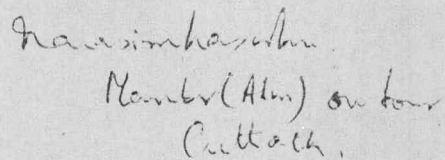 Narasimhasubu.
Member (Adm) on tour
Cuttack.